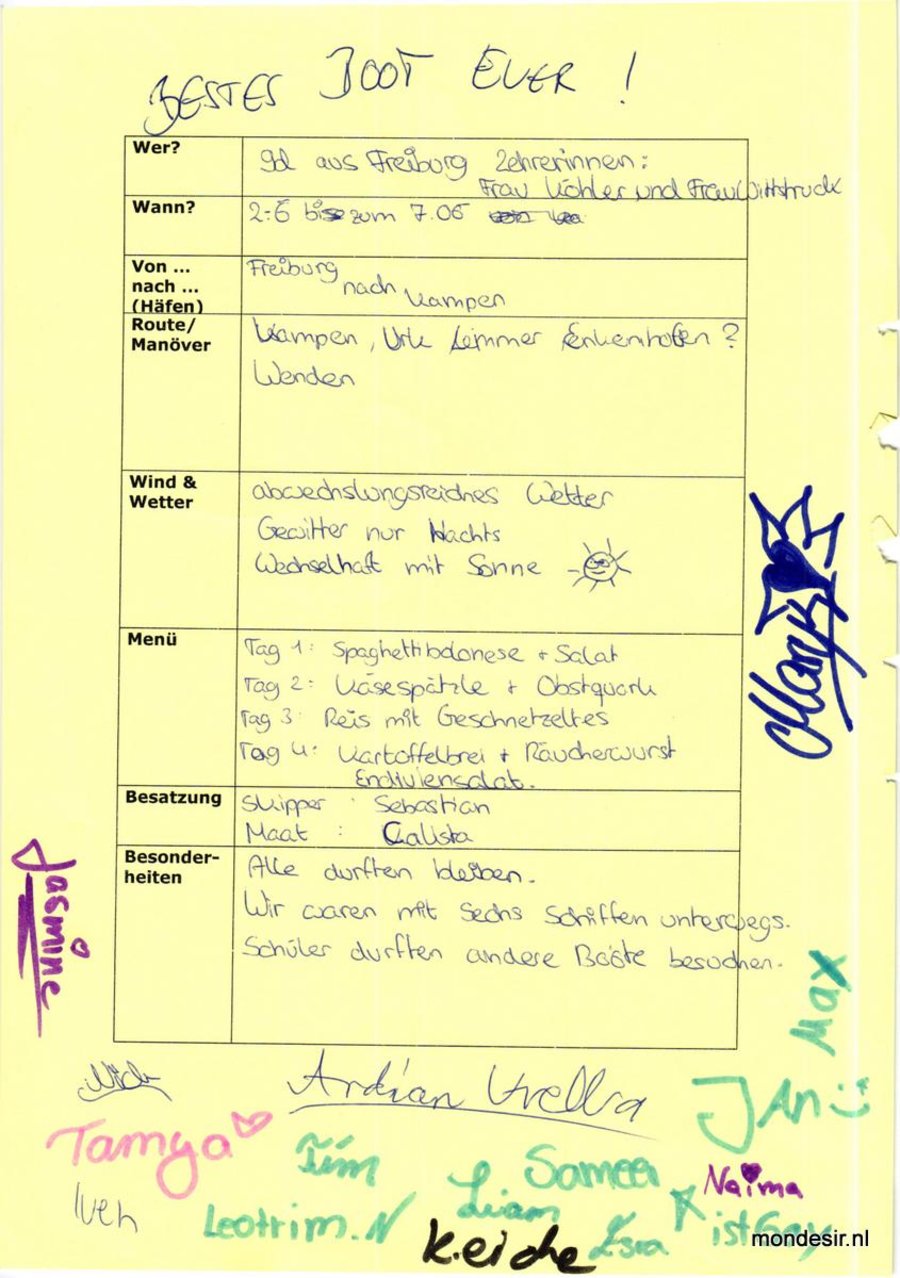 BESTES BOOT EVER !
Wer?
9d aus Freiburg Lehrerinnen:
Frau Köhler und Frau Wittstruck
Wann?
2.6 bis zum 7.06
Von ...
nach ...
(Häfen)
Freiburg
nach
Kampen
Route/
Manöver
Kampen, Urk Lemmer Enkenhofen ?
Wenden
Wind &
Wetter
abwechslungsreiches Wetter
Gewitter nur Nachts
Wechselhaft mit Sonne
Menü
Tag 1: Spaghettibolonese + Salat
Tag 2: Käsespätzle + Obstquark
Tag 3: Reis mit Geschnetzeltes
Tag 4: Kartoffelbrei + Räucherwurst
Endiviensalat.
Besatzung
Skipper : Sebastian
Maat : Caliska
Besonder-
heiten
Alle durften bleiben.
Wir waren mit Sechs Schiffen unterwegs.
Schüler durften andere Boote besuchen.
Mark
Jasmine
Max
Ardian Krella
JAn
Tamya
Tim
Sameer
Naima
Iven
Leotrim.N
Liam
K.eiche
Esra
ist Gay
mondesir.nl